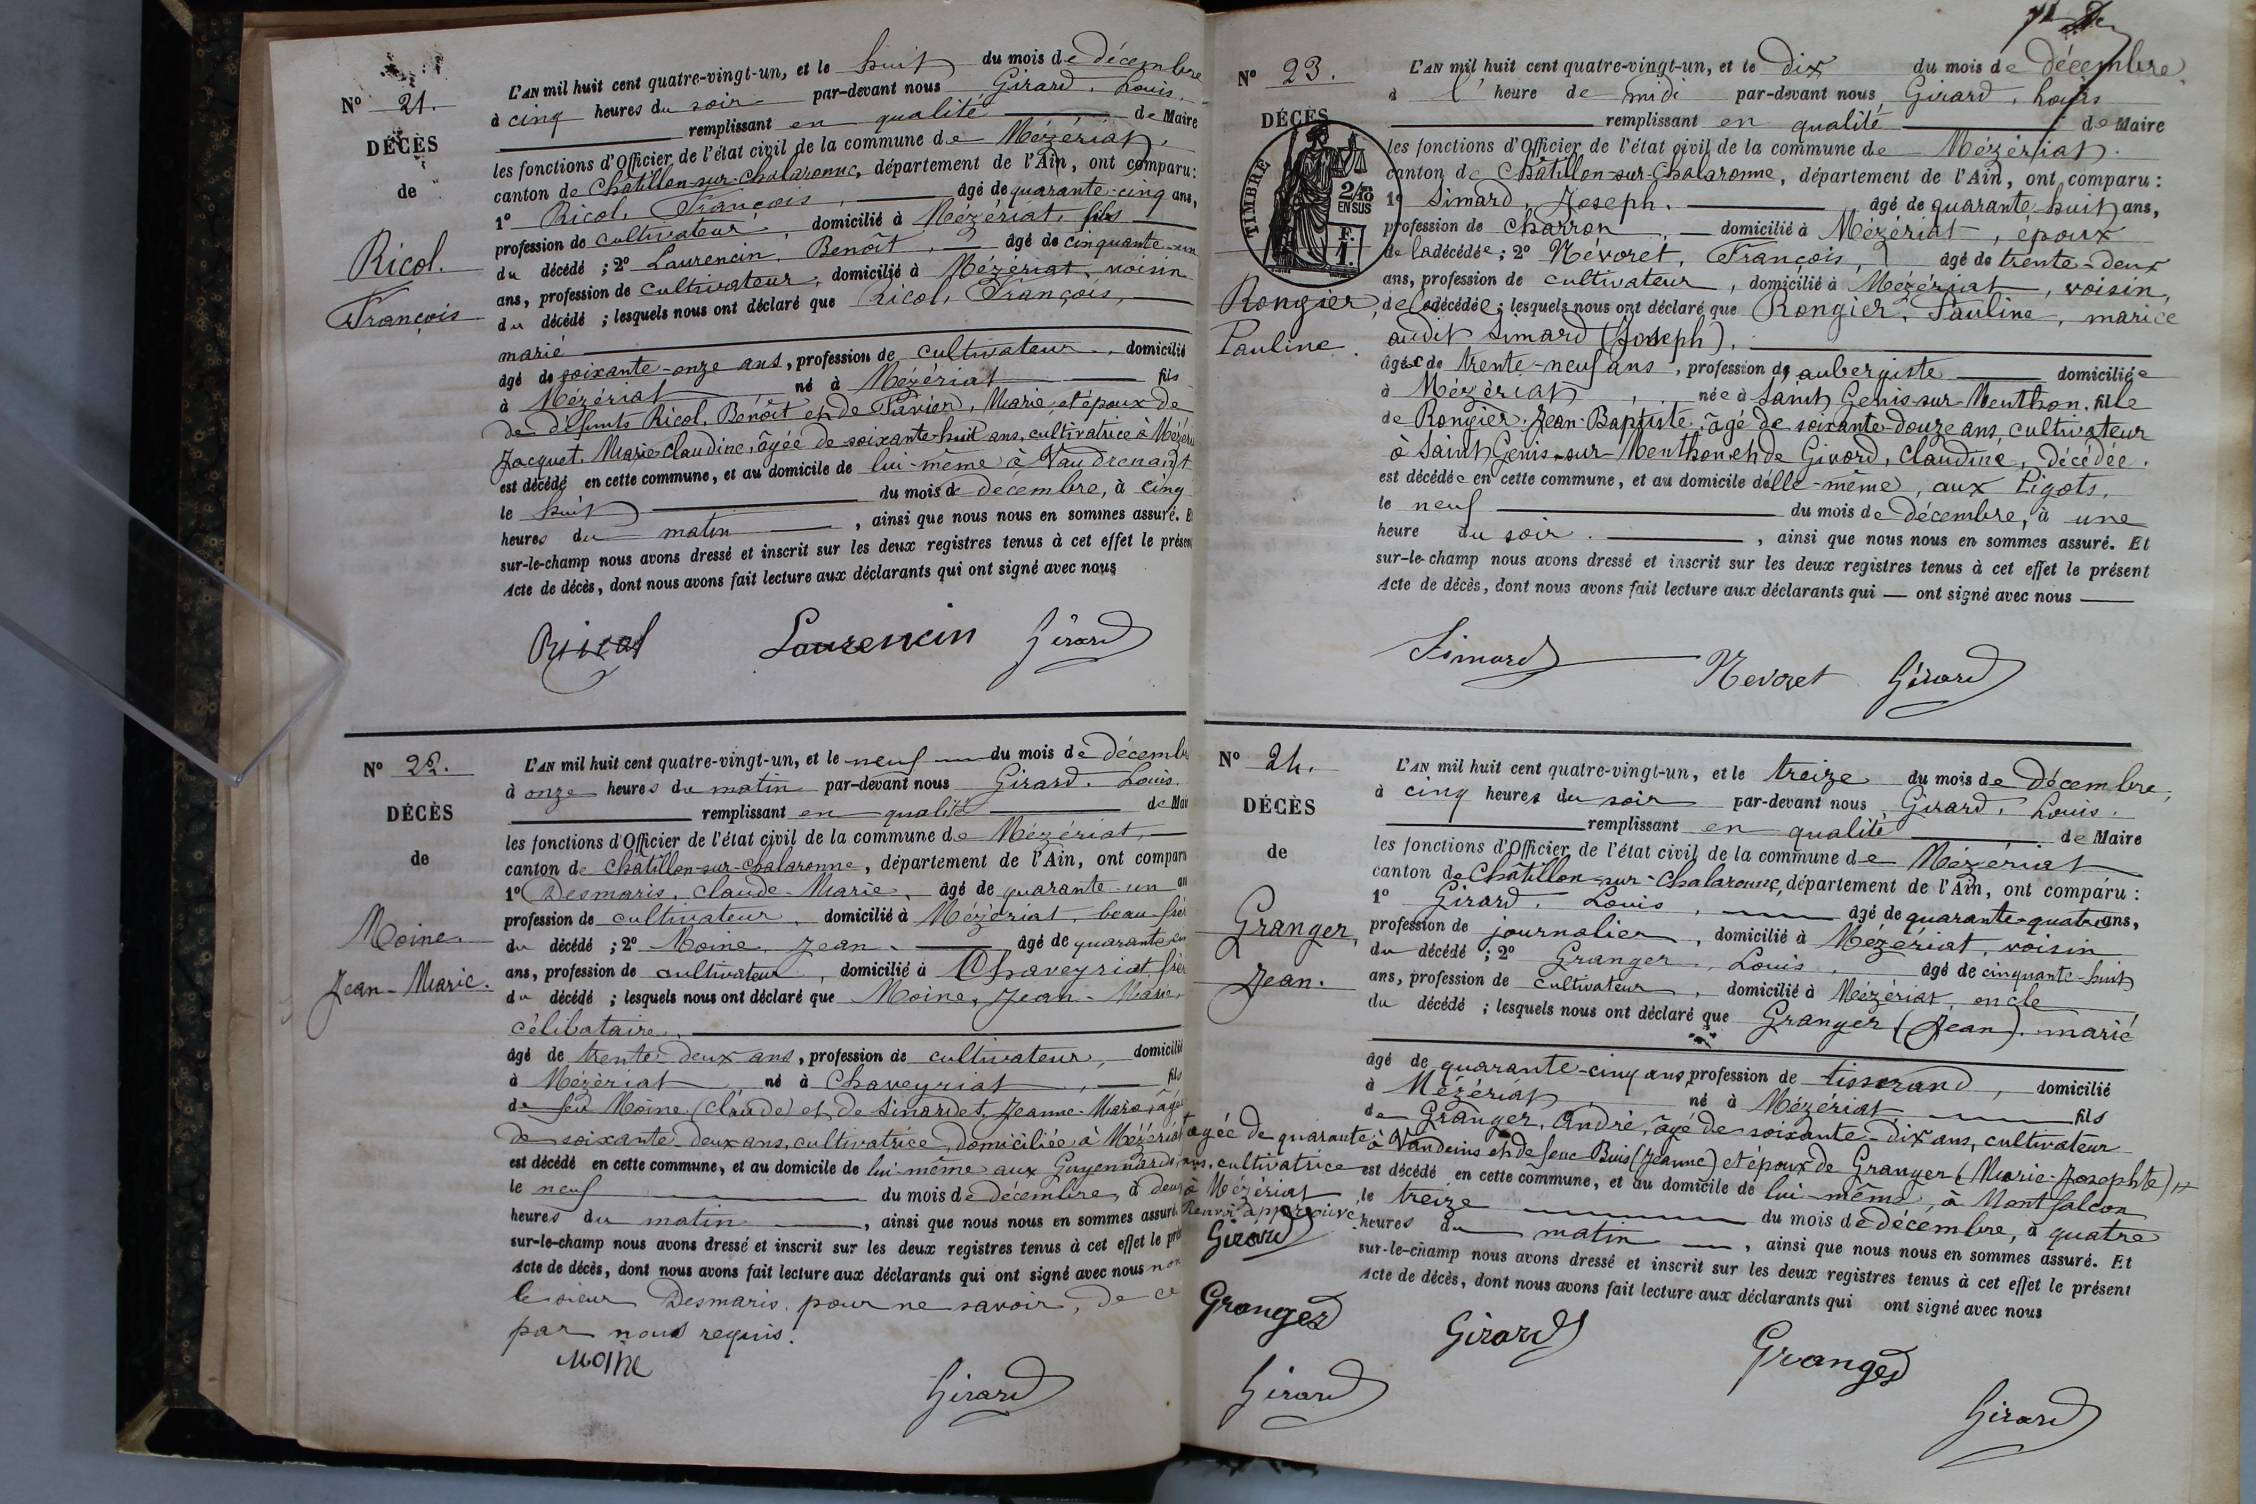 N° 21.
DÉCÈS
de
Ricol.
François
L'AN mil huit cent quatre-vingt-un, et le huit du mois de décembre
à cinq heures du soir par-devant nous Girard, Louis,
remplissant en qualité de Maire
les fonctions d'Officier de l'état civil de la commune de Mézériat,
canton de Châtillon-sur-Chalaronne, département de l'Ain, ont comparu:
1° Ricol, François, âgé de quarante-cinq ans,
profession de cultivateur, domicilié à Mézériat, fils
du décédé ; 2° Laurencin, Benoît, âgé de cinquante-un
ans, profession de cultivateur, domicilié à Mézériat, voisin
du décédé ; lesquels nous ont déclaré que Ricol, François,
marié
âgé de soixante-onze ans, profession de cultivateur, domicilié
à Mézériat né à Mézériat fils
de défunts Ricol, Benoît et de Pavier, Marie, et époux de
Jacquet, Marie Claudine, âgée de soixante-huit ans, cultivatrice à Mézéria
est décédé en cette commune, et au domicile de lui-même à Vaudrenard
le huit du mois de décembre, à cinq
heures du matin, ainsi que nous nous en sommes assuré. E
sur-le-champ nous avons dressé et inscrit sur les deux registres tenus à cet effet le présen
Acte de décès, dont nous avons fait lecture aux déclarants qui ont signé avec nous
Ricol Laurencin Girard
N° 22.
DÉCÈS
de
Moine
Jean-Marie.
L'AN mil huit cent quatre-vingt-un, et le neuf du mois de décemb
à onze heures du matin par-devant nous Girard, Louis.
remplissant en qualité de Mai
les fonctions d'Officier de l'état civil de la commune de Mézériat,
canton de Châtillon-sur-Chalaronne, département de l'Ain, ont comparu
1° Desmaris, Claude-Marie, âgé de quarante-un an
profession de cultivateur, domicilié à Mézériat, beau-frèr
du décédé ; 2° Moine, Jean, âgé de quarante
ans, profession de cultivateur, domicilié à Chaveyriat, frèr
du décédé ; lesquels nous ont déclaré que Moine, Jean-Marie,
célibataire,
âgé de trente-deux ans, profession de cultivateur, domicilié
à Mézériat, né à Chaveyriat, fils
de feu Moine (Claude) et de Sinardet, Jeanne-Marie, âgée
de soixante-deux ans, cultivatrice, domiciliée à Mézériat
est décédé en cette commune, et au domicile de lui-même aux Guyennards
le neuf du mois de décembre, à deux
heures du matin, ainsi que nous nous en sommes assuré.
sur-le-champ nous avons dressé et inscrit sur les deux registres tenus à cet effet le pré
Acte de décès, dont nous avons fait lecture aux déclarants qui ont signé avec nous non
le sieur Desmaris, pour ne savoir, de ce
par nous requis.
Moine Girard
N° 23.
DÉCÈS
TIMBRE
2/10 EN SUS
F. 1.
Rongier,
Pauline.
L'AN mil huit cent quatre-vingt-un, et le dix du mois de décembre
à l'heure de midi par-devant nous Girard, Louis
remplissant en qualité de Maire
les fonctions d'Officier de l'état civil de la commune de Mézériat.
canton de Châtillon-sur-Chalaronne, département de l'Ain, ont comparu :
1° Simard, Joseph, âgé de quarante-huit ans,
profession de charron, domicilié à Mézériat, époux
de la décédée ; 2° Névoret, François, âgé de trente-deux
ans, profession de cultivateur, domicilié à Mézériat, voisin,
de la décédée ; lesquels nous ont déclaré que Rongier, Pauline, mariée
audit Simard (Joseph),
âgée de trente-neuf ans, profession d'aubergiste domiciliée
à Mézériat, née à Saint Genis-sur-Menthon, fille
de Rongier, Jean-Baptiste, âgé de soixante-douze ans, cultivateur
à Saint Genis-sur-Menthon et de Givord, Claudine, décédée.
est décédée en cette commune, et au domicile d'elle-même, aux Ligots,
le neuf du mois de décembre, à une
heure du soir, ainsi que nous nous en sommes assuré. Et
sur-le-champ nous avons dressé et inscrit sur les deux registres tenus à cet effet le présent
Acte de décès, dont nous avons fait lecture aux déclarants qui ont signé avec nous
Simard Nevoret Girard
N° 24.
DÉCÈS
de
Granger,
Jean.
L'AN mil huit cent quatre-vingt-un, et le treize du mois de décembre,
à cinq heures du soir par-devant nous Girard, Louis.
remplissant en qualité de Maire
les fonctions d'Officier de l'état civil de la commune de Mézériat
canton de Châtillon-sur-Chalaronne, département de l'Ain, ont comparu :
1° Girard, Louis, âgé de quarante-quatre ans,
profession de journalier, domicilié à Mézériat, voisin
du décédé ; 2° Granger, Louis, âgé de cinquante-huit
ans, profession de cultivateur, domicilié à Mézériat, oncle
du décédé ; lesquels nous ont déclaré que Granger (Jean), marié
âgé de quarante-cinq ans profession de tisserand, domicilié
à Mézériat né à Mézériat, fils
de Granger, André, âgé de soixante-dix ans, cultivateur
à Vandeins et de feue Buis (Jeanne) et époux de Granger (Marie-Josephte) H
est décédé en cette commune, et au domicile de lui-même, à Montfalcon
le treize du mois de décembre, à quatre
heures du matin, ainsi que nous nous en sommes assuré. Et
sur-le-champ nous avons dressé et inscrit sur les deux registres tenus à cet effet le présent
Acte de décès, dont nous avons fait lecture aux déclarants qui ont signé avec nous
âgée de quarante
ans, cultivatrice
à Mézériat
Renvoi approuvé.
Girard
Granger
Girard
Girard Granger
Girard